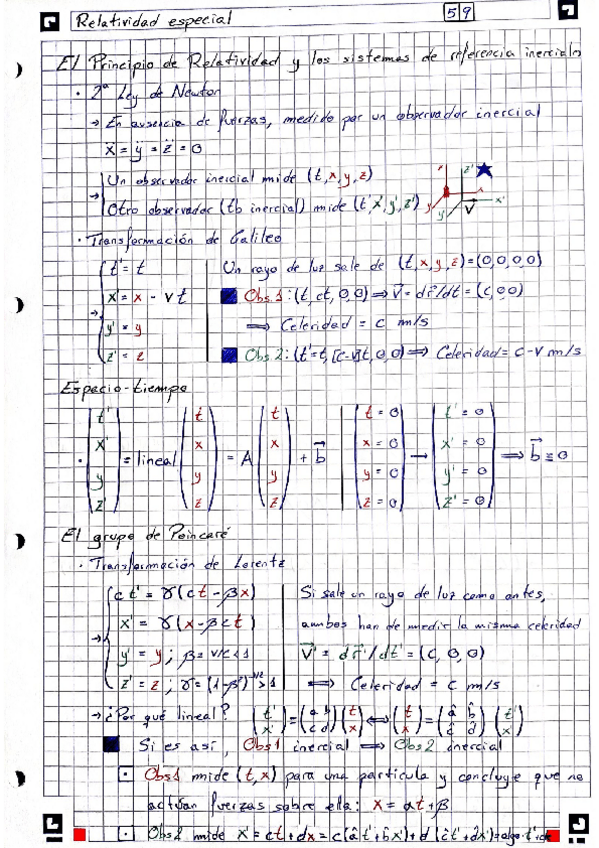 Relatividad especial
59
El Principio de Relatividad y los sistemas de referencia inerciales
· 2ª Ley de Newton
→ En ausencia de fuerzas, medido por un observador inercial
ẍ = ÿ = z̈ = 0
→ Un observador inercial mide (t, x, y, z)
Otro observador (tb inercial) mide (t', x', y', z')
z'
x'
y
y'
V
· Transformación de Galileo
t' = t
x' = x - vt
y' = y
z' = z
Un rayo de luz sale de (t, x, y, z) = (0, 0, 0, 0)
Obs. 1: (t, ct, 0, 0) ⇒ v⃗ = dr⃗/dt = (c, 0, 0)
⇒ Celeridad = c m/s
Obs. 2: (t' = t, [c-v]t, 0, 0) ⇒ Celeridad = c-v m/s
Espacio-tiempo
· (t' x' y' z') = lineal (t x y z) = A (t x y z) + b⃗
(t = 0 x = 0 y = 0 z = 0) → (t' = 0 x' = 0 y' = 0 z' = 0) ⇒ b⃗ ≡ 0
El grupo de Poincaré
· Transformación de Lorentz
ct' = γ(ct - βx)
x' = γ(x - βct)
y' = y; β = v/c < 1
z' = z; γ = (1-β²)^-1/2 > 1
Si sale un rayo de luz como antes,
ambos han de medir la misma celeridad
v⃗' = dr⃗'/dt' = (c, 0, 0)
⇒ Celeridad = c m/s
→ ¿Por qué lineal? (t' x') = (a b c d)(t x) ⇔ (t x) = (â b̂ ĉ d̂)(t' x')
Si es así, Obs1 inercial ⇒ Obs2 inercial
Obs1 mide (t, x) para una partícula y concluye que no
actúan fuerzas sobre ella: x = αt + β
Obs2 mide x' = ct + dx = c(ât' + b̂x') + d(ĉt' + d̂x') = algo·t' + de